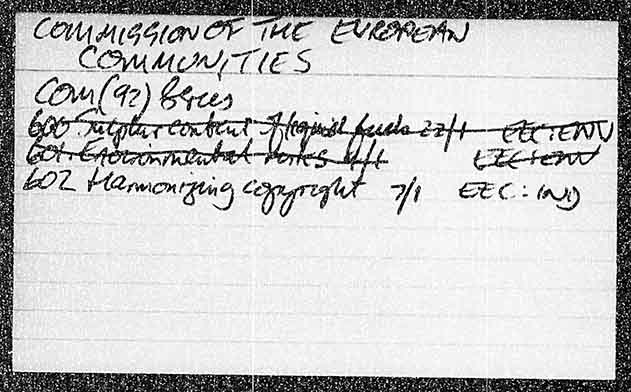 COMMISSION OF THE EUROPEAN
COMMUNITIES
COM(92) Series
600 Sulphur content of liquid fuels 22/1 EEC:ENV
601 Environmental 4/1 EEC:ENV
602 Harmonizing copyright 7/1 EEC:IND